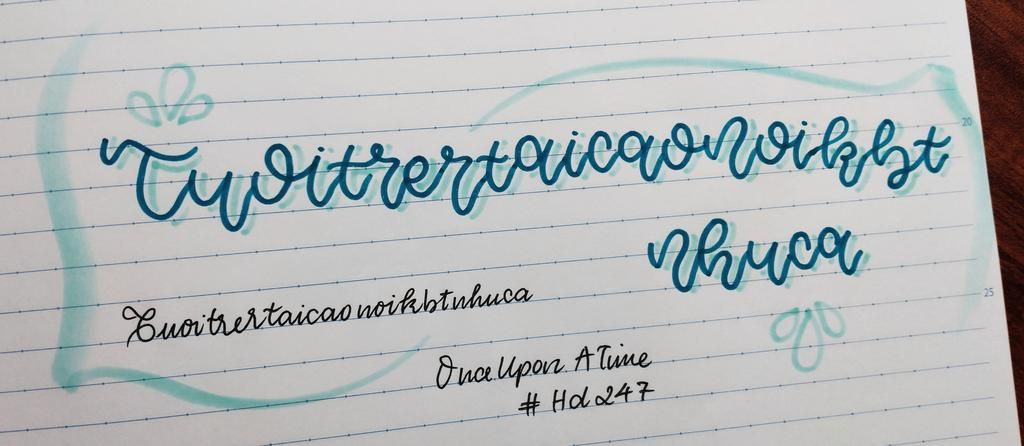 Tuoitrertaicaonoikbt
nhuca
Tuoitrertaicaonoikbtnhuca
Once Upon A Time
# Hd 247
20
25